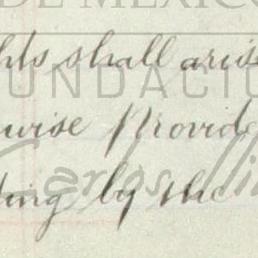 DE MÉXICO
hts shall aris
FUNDACIÓ
wise provide
Carlos
ting by the